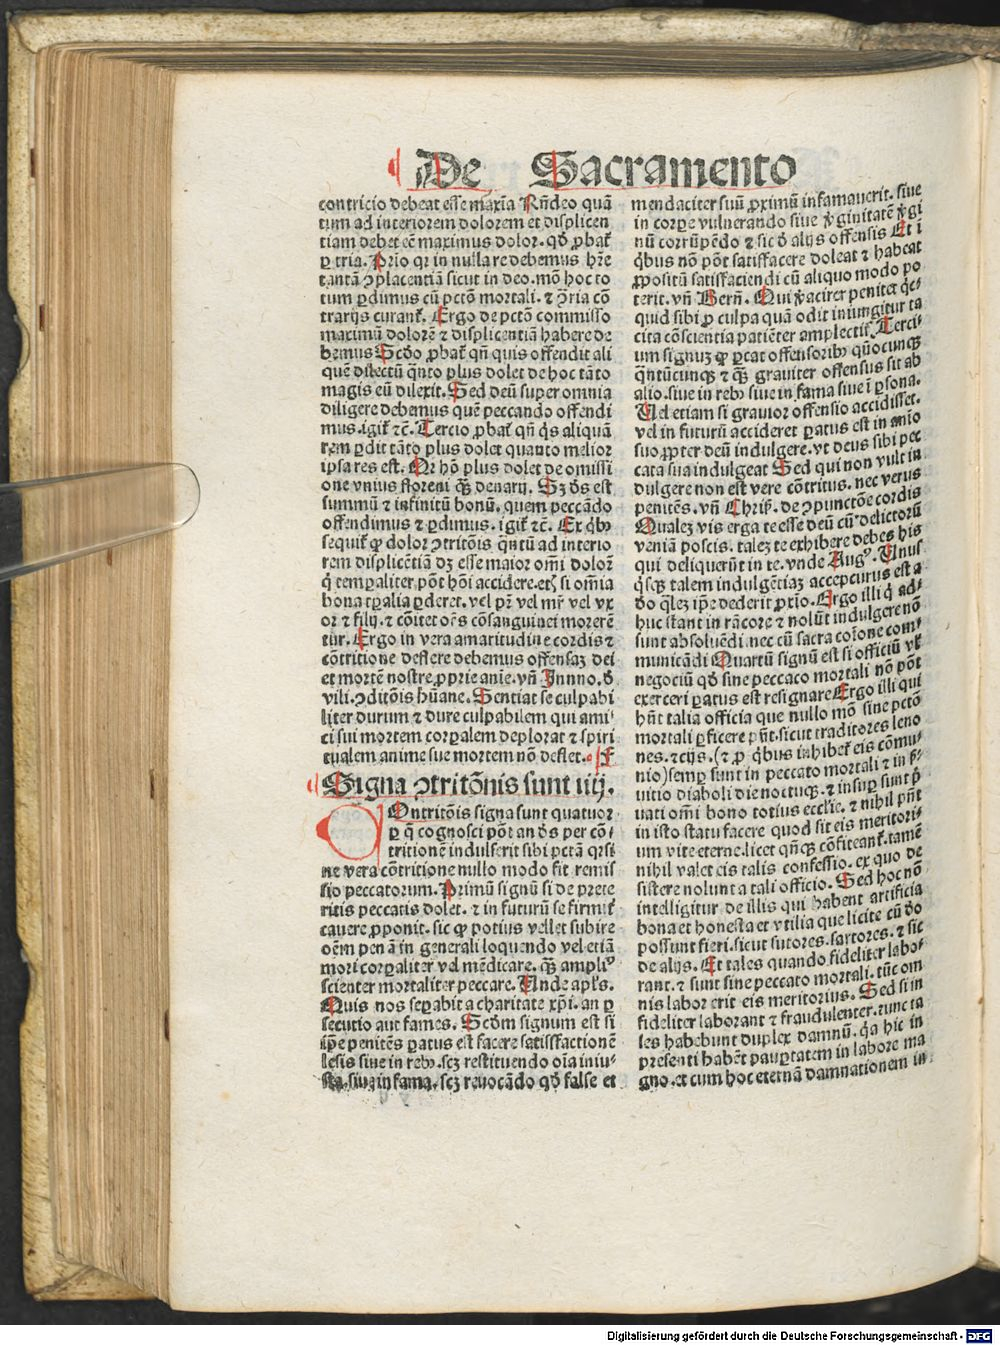 De Sacramento
contricio debeat esse maxīa Rn̄deo quā
tum ad interiorem dolorem et displicen
tiam debet eē maximus dolor. qđ ꝓbat̃
ꝑ tria. Prīo qꝛ in nulla re debemus hr̄e
tantā ꝯplacentiā sicut in deo. mō hoc to
tum ꝑdimus cū pctō mortali. ⁊ ꝯria cō
trarijs curant̃. Ergo de pctō commisso
maximū dolorē ⁊ displicentiā habere de
bemus Scđo ꝓbat̃ qn̄ quis offendit ali
quē dilectū q̄nto plus dolet de hoc tāto
magis eū dilexit. Sed deū super omnia
diligere debemus quē peccando offendi
mus. igit̃ ⁊c̄. Tercio ꝓbat̃ qn̄ q̇s aliquā
rem ꝑdit tāto plus dolet quanto melior
ipsa res est. Nā hō plus dolet de omissi
one vnius floreni q̄ꝫ denarij. Sꝫ đs est
summū ⁊ infinitū bonū. quem peccādo
offendimus ⁊ ꝑdimus. igit̃ ⁊c̄. Ex q̇bꝰ
sequit̃ ꝙ dolor ꝯtritōis q̄ntū ad interio
rem displicētiā dꝫ esse maior om̄i dolor
q̇ tempaliter pōt hōi accidere. etꝫ si om̄ia
bona tꝑalia ꝑderet. vel pr̄ vel mr̄ vel vx
or ⁊ filij. ⁊ cōitet oēs cōsanguinei morerē
tur. Ergo in vera amaritudine cordis ⁊
cōtritione deflere debemus offensaꝫ dei
et mortē nostre ꝓprie anīe. vn̄ Innno. đ
vili. ꝯditōis hūane. Sentiat se culpabi
liter durum ⁊ dure culpabilem qui ami
ci sui mortem corꝑalem deplorat ⁊ spiri
tualem anime sue mortem nō deflet. F
Signa ꝯtritōnis sunt iiij.
Ontritōis signa sunt quatuor
ꝑ q̄ cognosci pōt an đs per cō
tritionē indulserit sibi pctā qꝛ si
ne vera cōtritione nullo modo fit remis
sio peccatorum. Primū signū si de prete
ritis peccatis dolet. ⁊ in futurū se firmit̃
cauere ꝓponit. sic ꝙ potius vellet subire
oēm penā in generali loquendo vel etiā
mori corꝑaliter vel mēdicare. q̄ꝫ ampliꝰ
scienter mortaliter peccare. Unde apl̄s.
Quis nos seꝑabit a charitate xp̄i. an ꝑ
secutio aut fames. Scđm signum est si
ip̄e penitēs ꝑatus est facere satisfactionē
lesis siue in rebꝰ. scꝫ restituendo oīa iniu
sta. siue in fama. scꝫ reuocādo qđ false et
mendaciter suū ꝓximū infamauerit. siue
in corpe vulnerando siue v̄ginitatē v̄gi
nū corrūpēdo ⁊ sic đ alijs offensis Et i
q̇bus nō pōt satisfacere doleat ⁊ habeat
ꝓpositū satisfaciendi cū aliquo modo po
terit. vn̄ Bern̄. Qui v̄aciter penitet q̇c
quid sibi ꝓ culpa quā odit iniungitur ta
cita cōscientia patiēter amplectit̃ Terci
um signuꝫ ꝙ ꝑcat offensoribꝰ quōcunqꝫ
q̄ntūcunqꝫ ⁊ q̄ꝫ grauiter offensus sit ab
alio. siue in rebꝰ siue in fama siue ī ꝑsona.
Uel etiam si grauior offensio accidisset.
vel in futurū accideret ꝑatus est in anīo
suo ꝓpter deū indulgere. vt deus sibi pec
cata sua indulgeat Sed qui non vult in
dulgere non est vere cōtritus. nec verus
penitēs. vn̄ Chrīꝰ. de ꝯpunctōe cordis
Qualeꝫ vis erga te esse deū cū delictorū
veniā poscis. taleꝫ te exhibere debes his
qui deliquerūt in te. vnde Augꝰ. Unus
q̇sqꝫ talem indulgētiaꝫ accepturus est a
đo q̄leꝫ ip̄e dederit ꝓxīo. Ergo illi q̇ ad
huc stant in rācore ⁊ nolūt indulgere nō
sunt absoluēdi nec cū sacra coīone com
municādi Quartū signū est si officiū vl̄
negociū qđ sine peccato mortali nō pōt
exerceri ꝑatus est resignare Ergo illi qui
hn̄t talia officia que nullo mō sine pctō
mortali ꝑficere pn̄t. sicut traditores leno
nes. ⁊cijs. (⁊ ꝓ q̇bus inhibet̃ eis cōmu
nio) semꝑ sunt in peccato mortali ⁊ in ẜ
uitio diaboli die noctuqꝫ. ⁊ insuꝑ sunt ṗ
uati om̄i bono totius eccl̄ie. ⁊ nihil pn̄t
in isto statu facere quod sit eis meritori
um vite eterne. licet qn̄qꝫ cōfiteant̃. tamē
nihil valet eis talis confessio. ex quo de
sistere nolunt a tali officio. Sed hoc nō
intelligitur de illis qui habent artificia
bona et honesta et vtilia que licite cū đo
possunt fieri. sicut sutores. sartores. ⁊ sic
de alijs. Et tales quando fideliter labo
rant. ⁊ sunt sine peccato mortali. tūc om
nis labor erit eis meritorius. Sed si in
fideliter laborant ⁊ fraudulenter. tunc ta
les habebunt duplex damnū. q̇a hic in
presenti habēt pauꝑtatem in labore ma
gno. et cum hoc eternā damnationem in
Digitalisierung gefördert durch die Deutsche Forschungsgemeinschaft - DFG